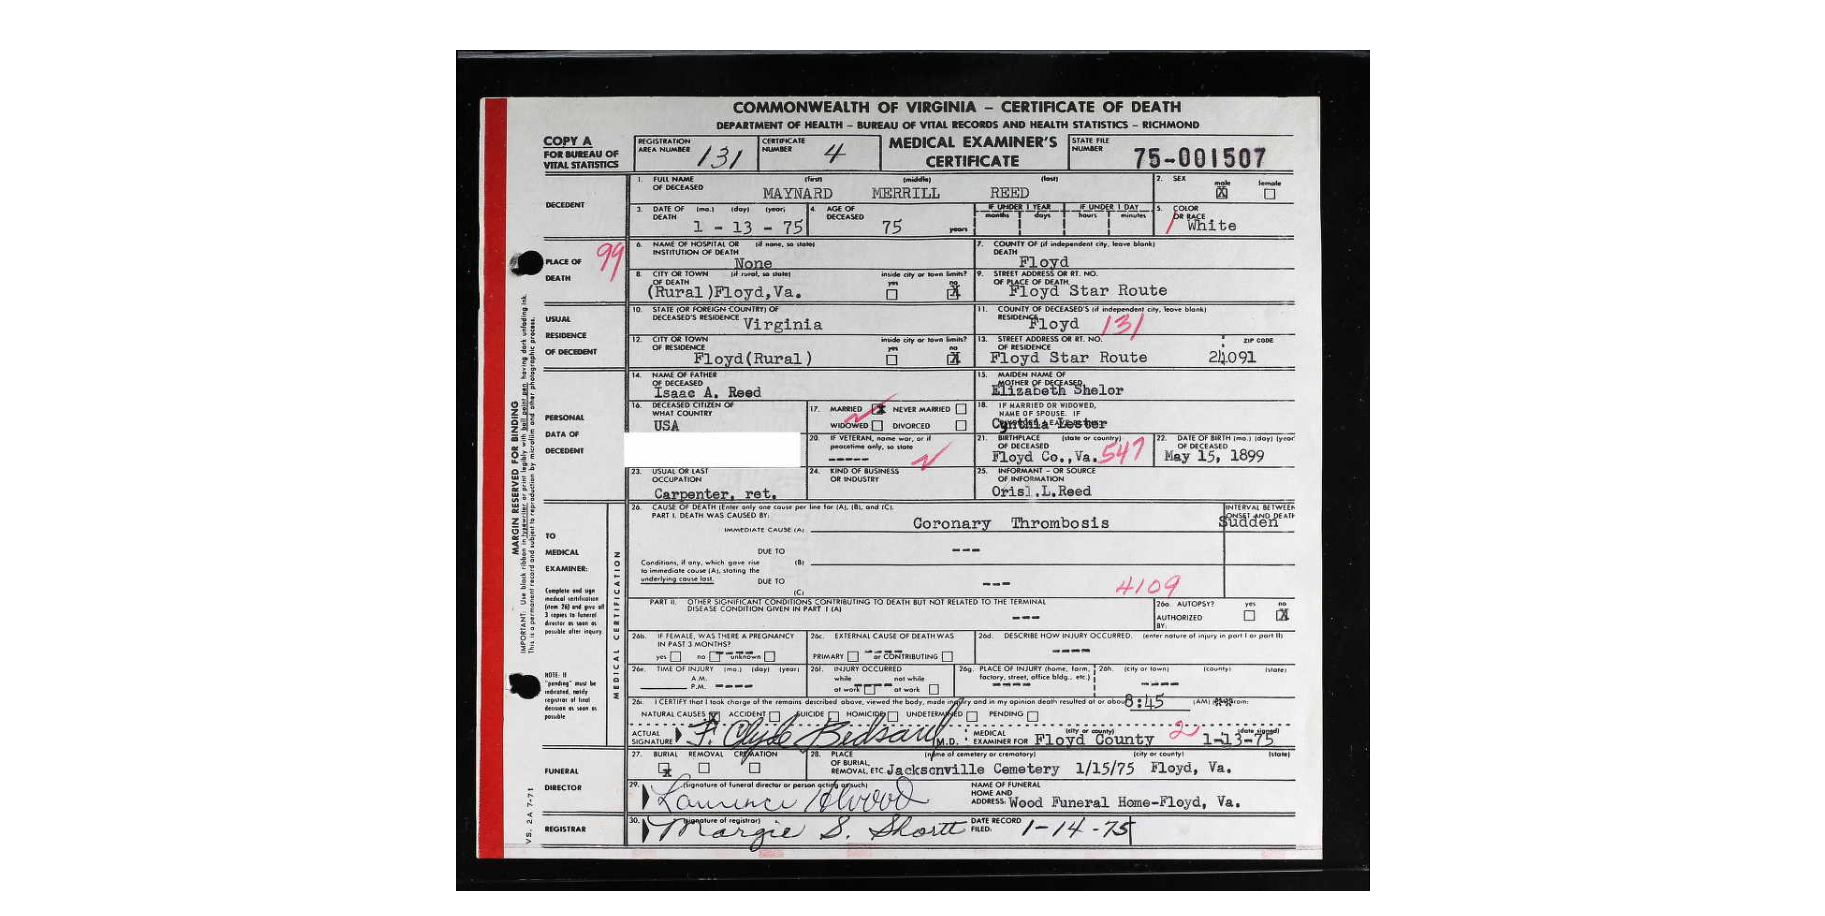 COMMONWEALTH OF VIRGINIA – CERTIFICATE OF DEATH
DEPARTMENT OF HEALTH – BUREAU OF VITAL RECORDS AND HEALTH STATISTICS – RICHMOND
COPY A
FOR BUREAU OF
VITAL STATISTICS
REGISTRATION
AREA NUMBER 131
CERTIFICATE
NUMBER 4
MEDICAL EXAMINER'S
CERTIFICATE
STATE FILE
NUMBER 75-001507
DECEDENT
1. FULL NAME (first) (middle) (last)
OF DECEASED
MAYNARD MERRILL REED
2. SEX male female
X
3. DATE OF (mo.) (day) (year)
DEATH
1 - 13 - 75
4. AGE OF
DECEASED
75 years
IF UNDER 1 YEAR IF UNDER 1 DAY
months days hours minutes
5. COLOR
OR RACE
White
PLACE OF
DEATH
99
6. NAME OF HOSPITAL OR (if none, so state)
INSTITUTION OF DEATH
None
7. COUNTY OF (if independent city, leave blank)
DEATH
Floyd
8. CITY OR TOWN (if rural, so state) inside city or town limits?
OF DEATH yes no
(Rural)Floyd,Va. X
9. STREET ADDRESS OR RT. NO.
OF PLACE OF DEATH
Floyd Star Route
USUAL
RESIDENCE
OF DECEDENT
10. STATE (OR FOREIGN COUNTRY) OF
DECEASED'S RESIDENCE
Virginia
11. COUNTY OF DECEASED'S (if independent city, leave blank)
RESIDENCE
Floyd 131
12. CITY OR TOWN inside city or town limits?
OF RESIDENCE yes no
Floyd(Rural) X
13. STREET ADDRESS OR RT. NO. ZIP CODE
OF RESIDENCE
Floyd Star Route 24091
PERSONAL
DATA OF
DECEDENT
14. NAME OF FATHER
OF DECEASED
Isaac A. Reed
15. MAIDEN NAME OF
MOTHER OF DECEASED
Elizabeth Shelor
16. DECEASED CITIZEN OF
WHAT COUNTRY
USA
17. MARRIED X NEVER MARRIED
WIDOWED DIVORCED
18. IF MARRIED OR WIDOWED,
NAME OF SPOUSE. IF
Cynthia Lester
20. IF VETERAN, name war, or if
peacetime only, so state
-----
21. BIRTHPLACE (state or country)
OF DECEASED
Floyd Co.,Va. 547
22. DATE OF BIRTH (mo.) (day) (year
OF DECEASED
May 15, 1899
23. USUAL OR LAST
OCCUPATION
Carpenter, ret.
24. KIND OF BUSINESS
OR INDUSTRY
25. INFORMANT – OR SOURCE
OF INFORMATION
L.Reed
TO
MEDICAL
EXAMINER:
Complete and sign
medical certification
(item 26) and give all
3 copies to funeral
director as soon as
possible after inquiry.
NOTE: If
"pending" must be
indicated, notify
registrar of final
decision as soon as
possible
MEDICAL CERTIFICATION
26. CAUSE OF DEATH (Enter only one cause per line for (A), (B), and (C).
PART I. DEATH WAS CAUSED BY:
IMMEDIATE CAUSE (A) Coronary Thrombosis
INTERVAL BETWEEN
ONSET AND DEATH
Sudden
DUE TO ---
Conditions, if any, which gave rise (B)
to immediate cause (A), stating the
underlying cause last. DUE TO ---
(C) 4109
PART II. OTHER SIGNIFICANT CONDITIONS CONTRIBUTING TO DEATH BUT NOT RELATED TO THE TERMINAL
DISEASE CONDITION GIVEN IN PART I (A)
---
26a. AUTOPSY? yes no
AUTHORIZED X
BY:
26b. IF FEMALE, WAS THERE A PREGNANCY
IN PAST 3 MONTHS?
yes no unknown
26c. EXTERNAL CAUSE OF DEATH WAS
PRIMARY or CONTRIBUTING
26d. DESCRIBE HOW INJURY OCCURRED. (enter nature of injury in part I or part II)
----
26e. TIME OF INJURY (mo.) (day) (year)
A.M.
P.M. ----
26f. INJURY OCCURRED
while not while
at work at work
26g. PLACE OF INJURY (home, farm,
factory, street, office bldg., etc.)
----
26h. (city or town) (county) (state)
----
26i. I CERTIFY that I took charge of the remains described above, viewed the body, made inquiry and in my opinion death resulted at or about 8:45 (AM) from:
NATURAL CAUSES X ACCIDENT SUICIDE HOMICIDE UNDETERMINED PENDING
ACTUAL
SIGNATURE F. Clyde Bedsaul M.D.
MEDICAL (city or county) (date signed)
EXAMINER FOR Floyd County 2 1-13-75
FUNERAL
DIRECTOR
27. BURIAL REMOVAL CREMATION
X
28. PLACE (name of cemetery or crematory) (city or county) (state)
OF BURIAL,
REMOVAL, ETC. Jacksonville Cemetery 1/15/75 Floyd, Va.
29. (signature of funeral director or person acting as such)
Lawrence Wood
NAME OF FUNERAL
HOME AND
ADDRESS: Wood Funeral Home-Floyd, Va.
REGISTRAR
30. (signature of registrar)
Margie S. Shortt
DATE RECORD
FILED: 1-14-75
MARGIN RESERVED FOR BINDING
IMPORTANT: Use black ribbon in typewriter or print legibly with ball point pen having dark unfading ink.
This is a permanent record and subject to reproduction by microfilm and other photographic process.
VS. 2A 7-71